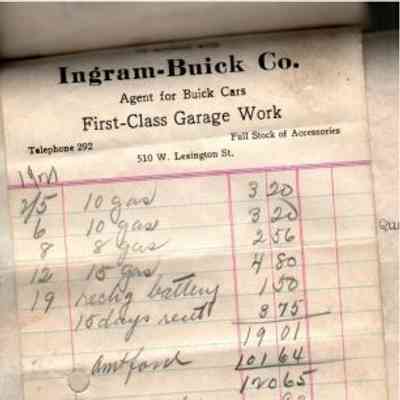 Ingram-Buick Co.
Agent for Buick Cars
First-Class Garage Work
Telephone 292 Full Stock of Accessories
510 W. Lexington St.
2/5 10 gas 3 20
6 10 gas 3 20
8 8 gas 2 56
12 15 gas 4 80
19 rechg battery 1 50
15 days rent 3 75
19 01
Amt ford 101 64
120 65